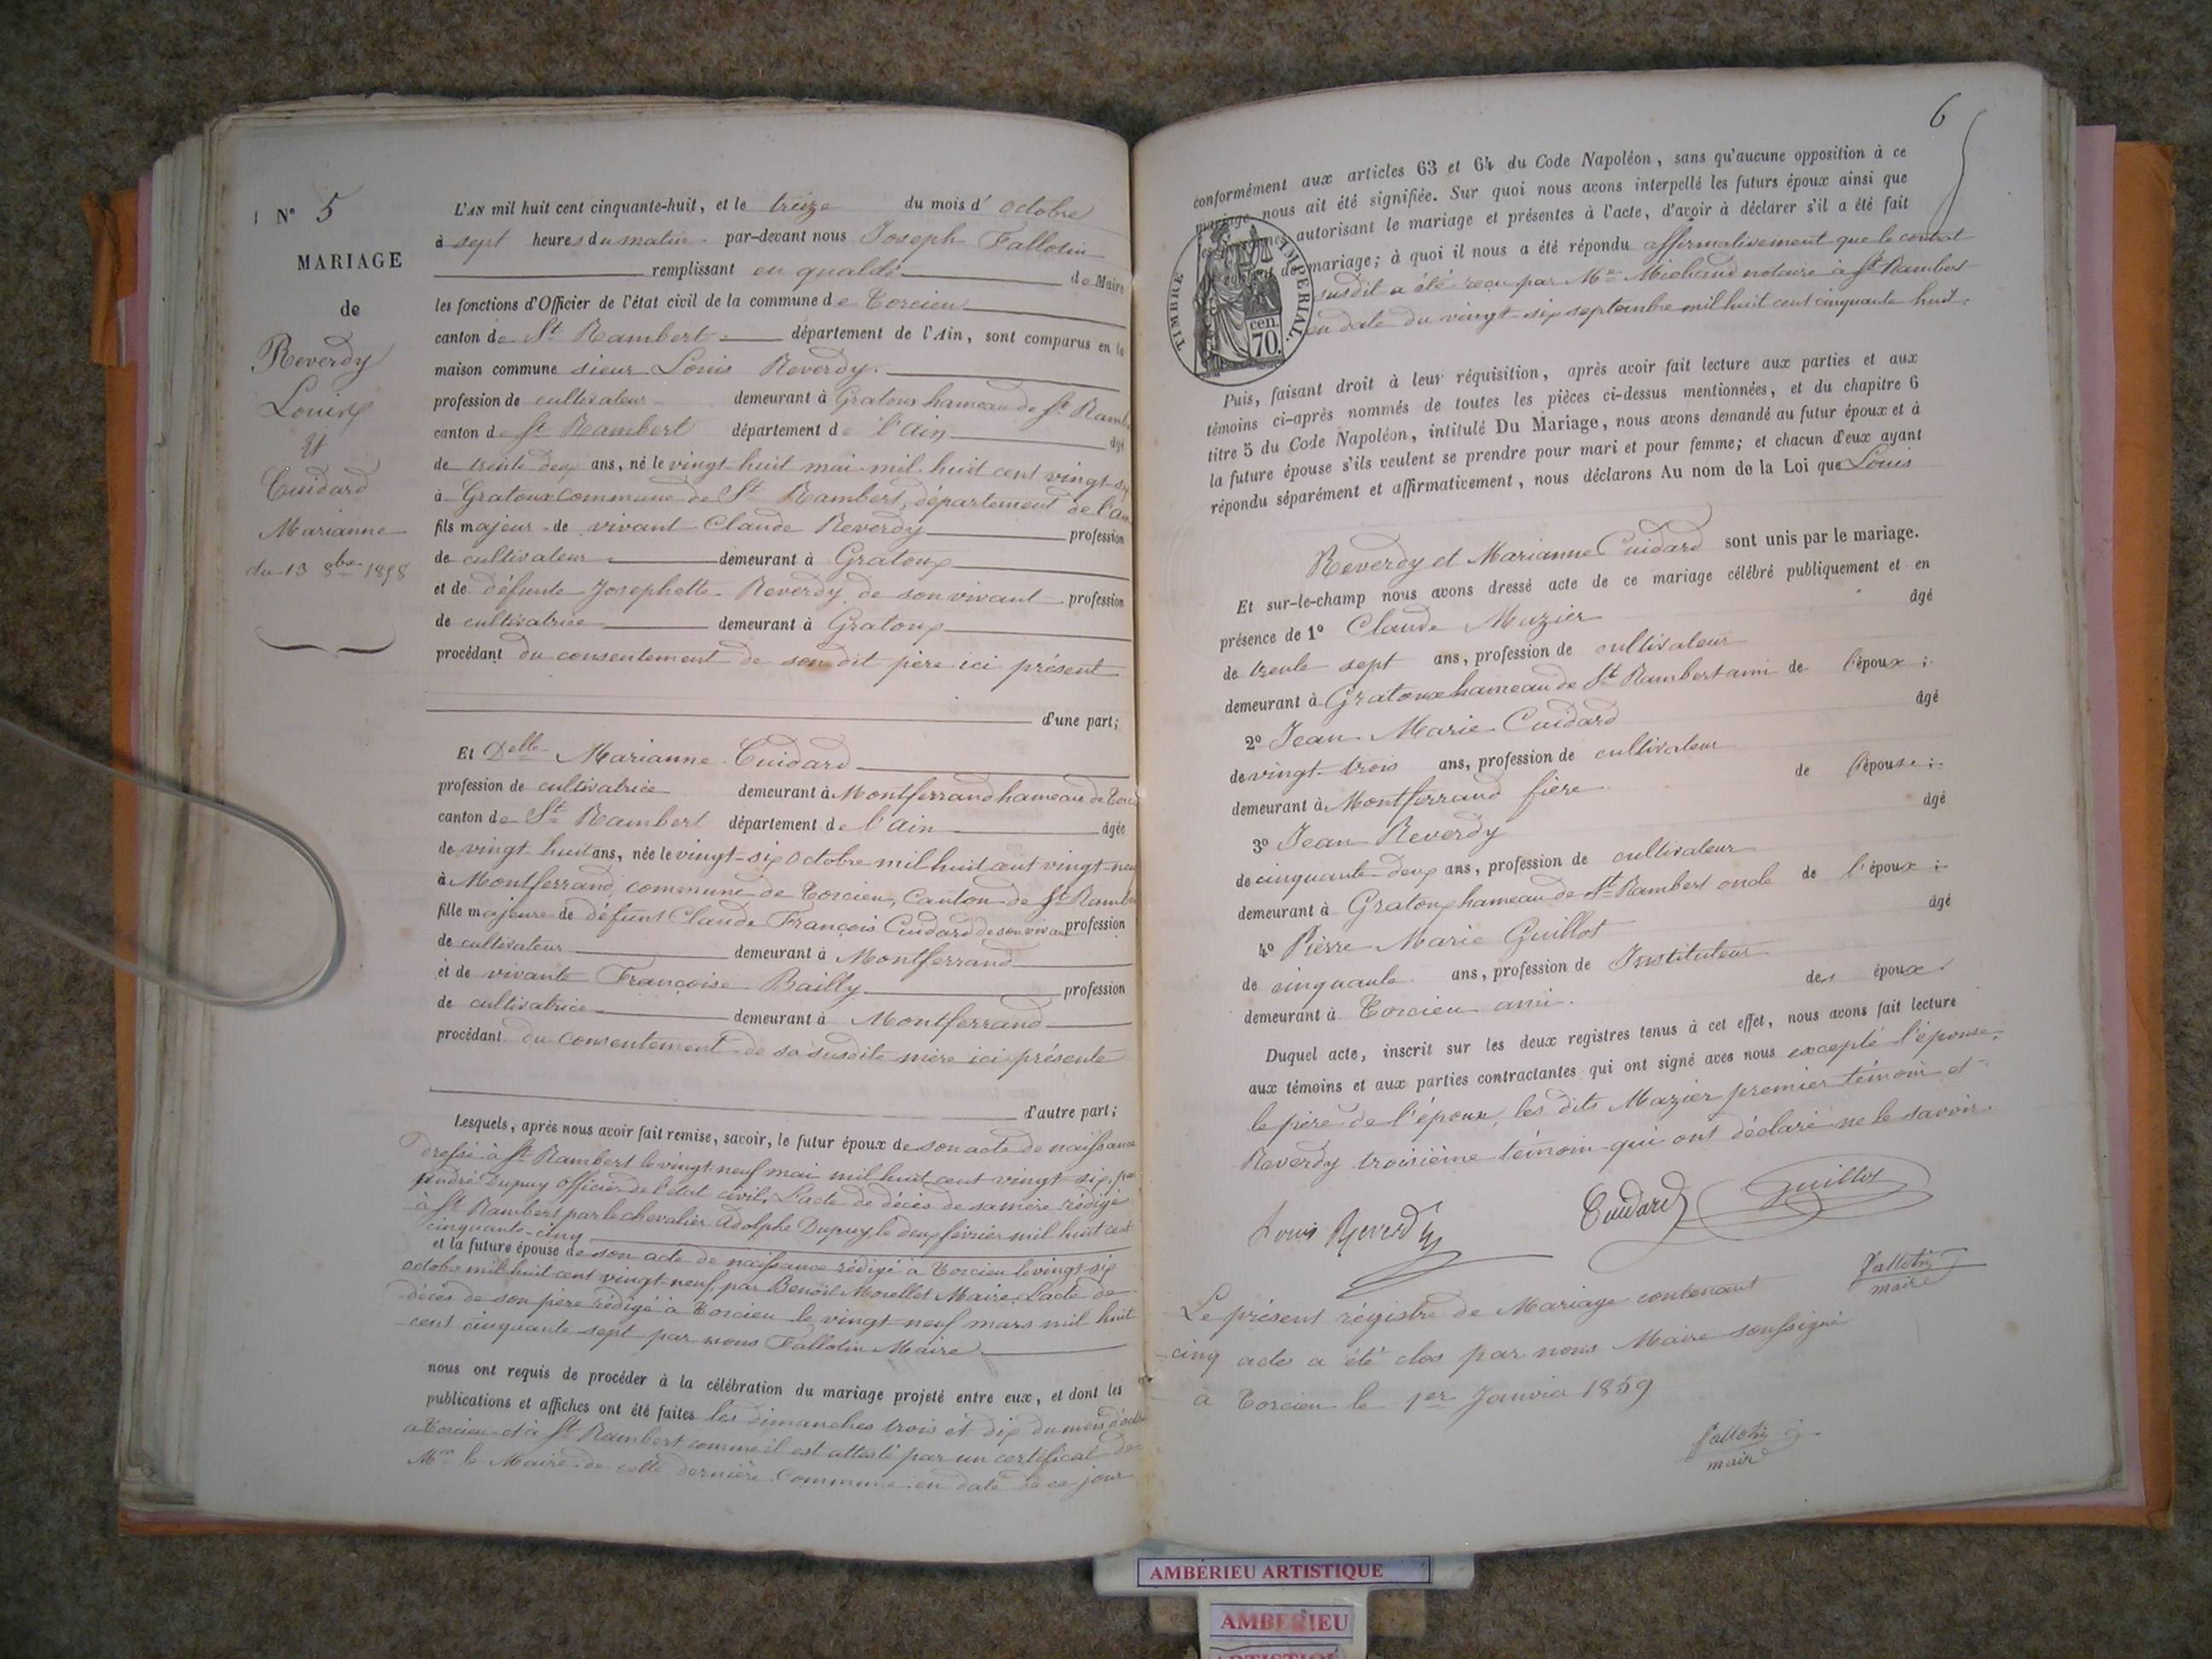 N° 5
MARIAGE
de
Reverdy
Louis
et
Cuidard
Marianne
du 13 8bre 1858
L'AN mil huit cent cinquante-huit, et le treize du mois d'octobre
à sept heures du matin par-devant nous Joseph Fallotin
remplissant en qualité de Maire
les fonctions d'Officier de l'état civil de la commune de Torcieu
canton de St Rambert département de l'Ain, sont comparus en la
maison commune sieur Louis Reverdy
profession de cultivateur demeurant à Gratoux hameau de St Ramb
canton de St Rambert département de l'Ain âgé
de trente deux ans, né le vingt huit mai mil huit cent vingt-six
à Gratoux commune de St Rambert, département de l'Ain
fils majeur de vivant Claude Reverdy profession
de cultivateur demeurant à Gratoux
et de défunte Josephette Reverdy, de son vivant profession
de cultivatrice demeurant à Gratoux
procédant du consentement de son dit père ici présent
d'une part;
Et Delle Marianne Cuidard
profession de cultivatrice demeurant à Montferrand hameau de Torc
canton de St Rambert département de l'Ain âgée
de vingt huit ans, née le vingt-six octobre mil huit cent vingt-neu
à Montferrand commune de Torcieu, Canton de St Ramb
fille majeure de défunt Claude François Cuidard de son vivant profession
de cultivateur demeurant à Montferrand
et de vivante Françoise Bailly profession
de cultivatrice demeurant à Montferrand
procédant du consentement de sa susdite mère ici présente
d'autre part;
Lesquels, après nous avoir fait remise, savoir, le futur époux de son acte de naissance
dressé à St Rambert le vingt-neuf mai mil huit cent vingt six, par
André Dupuy officier de l'état civil, l'acte de décès de sa mère rédigé
à St Rambert par le chevalier Adolphe Dupuy le deux février mil huit cent
cinquante-cinq
et la future épouse de son acte de naissance rédigé à Torcieu le vingt-six
octobre mil huit cent vingt-neuf, par Benoît Morellet Maire, l'acte de
décès de son père rédigé à Torcieu le vingt neuf mars mil huit
cent cinquante sept par nous Fallotin Maire
nous ont requis de procéder à la célébration du mariage projeté entre eux, et dont les
publications et affiches ont été faites les dimanches trois et dix du mois d'octo
à Torcieu et à St Rambert comme il est attesté par un certificat de
Mr le Maire de cette dernière Commune en date de ce jour
6
conformément aux articles 63 et 64 du Code Napoléon, sans qu'aucune opposition à ce
mariage nous ait été signifiée. Sur quoi nous avons interpellé les futurs époux ainsi que
les personnes autorisant le mariage et présentes à l'acte, d'avoir à déclarer s'il a été fait
contrat de mariage; à quoi il nous a été répondu affirmativement que le contrat
susdit a été reçu par Me Michaud notaire à St Rambert
en date du vingt-six septembre mil huit cent cinquante huit.
TIMBRE IMPERIAL
70 cen.
Puis, faisant droit à leur réquisition, après avoir fait lecture aux parties et aux
témoins ci-après nommés de toutes les pièces ci-dessus mentionnées, et du chapitre 6
titre 5 du Code Napoléon, intitulé Du Mariage, nous avons demandé au futur époux et à
la future épouse s'ils veulent se prendre pour mari et pour femme; et chacun d'eux ayant
répondu séparément et affirmativement, nous déclarons Au nom de la Loi que Louis
Reverdy et Marianne Cuidard sont unis par le mariage.
Et sur-le-champ nous avons dressé acte de ce mariage célébré publiquement et en
présence de 1° Claude Mazier âgé
de trente sept ans, profession de cultivateur
demeurant à Gratoux hameau de St Rambert ami de l'époux;
2° Jean Marie Cuidard âgé
de vingt-trois ans, profession de cultivateur
demeurant à Montferrand frère de l'épouse;
3° Jean Reverdy âgé
de cinquante-deux ans, profession de cultivateur
demeurant à Gratoux hameau de St Rambert oncle de l'époux;
4° Pierre Marie Guillot âgé
de cinquante ans, profession de Instituteur
demeurant à Torcieu ami des époux.
Duquel acte, inscrit sur les deux registres tenus à cet effet, nous avons fait lecture
aux témoins et aux parties contractantes qui ont signé avec nous excepté l'épouse,
le père de l'époux, les dits Mazier premier témoin et
Reverdy troisième témoin qui ont déclaré ne le savoir.
Louis Reverdy Cuidard Guillot
Fallotin
maire
Le présent régistre de Mariage contenant
cinq actes a été clos par nous Maire soussigné
à Torcieu le 1er Janvier 1859
Fallotin
maire
AMBÉRIEU ARTISTIQUE
AMBERIEU
ARTISTIQUE